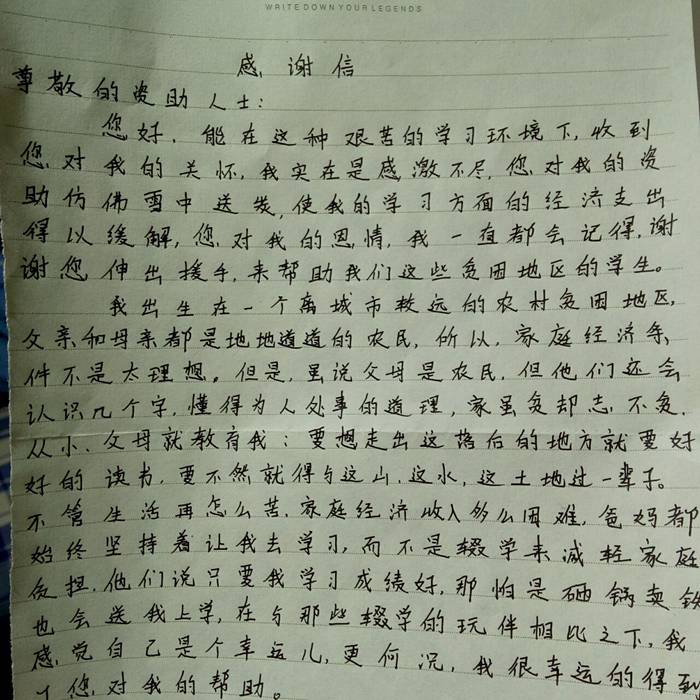 WRITE DOWN YOUR LEGENDS
感谢信
尊敬的资助人士：
您好，能在这种艰苦的学习环境下，收到
您对我的关怀，我实在是感激不尽，您对我的资
助仿佛雪中送炭，使我的学习方面的经济支出
得以缓解，您对我的恩情，我一直都会记得，谢
谢您伸出援手，来帮助我们这些贫困地区的学生。
我出生在一个离城市较远的农村贫困地区，
父亲和母亲都是地地道道的农民，所以，家庭经济条
件不是太理想。但是，虽说父母是农民，但他们还会
认识几个字，懂得为人处事的道理，家虽贫却志不贫，
从小，父母就教育我：要想走出这落后的地方就要好
好的读书，要不然就得与这山，这水，这土地过一辈子。
不管生活再怎么苦，家庭经济收入多么困难，爸妈都
始终坚持着让我去学习，而不是辍学来减轻家庭
负担，他们说只要我学习成绩好，那怕是砸锅卖铁
也会送我上学，在与那些辍学的玩伴相比之下，我
感觉自己是个幸运儿，更何况，我很幸运的得到
了您对我的帮助。